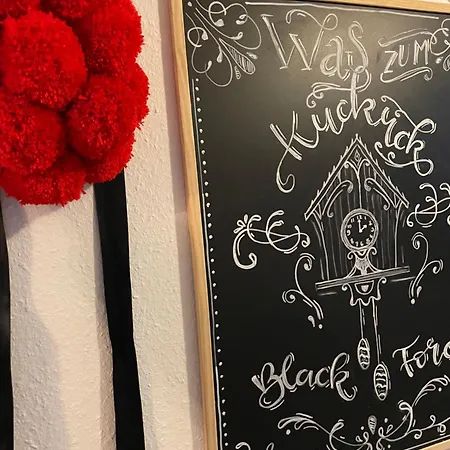 Was zum
Kuckuck
Black Fore